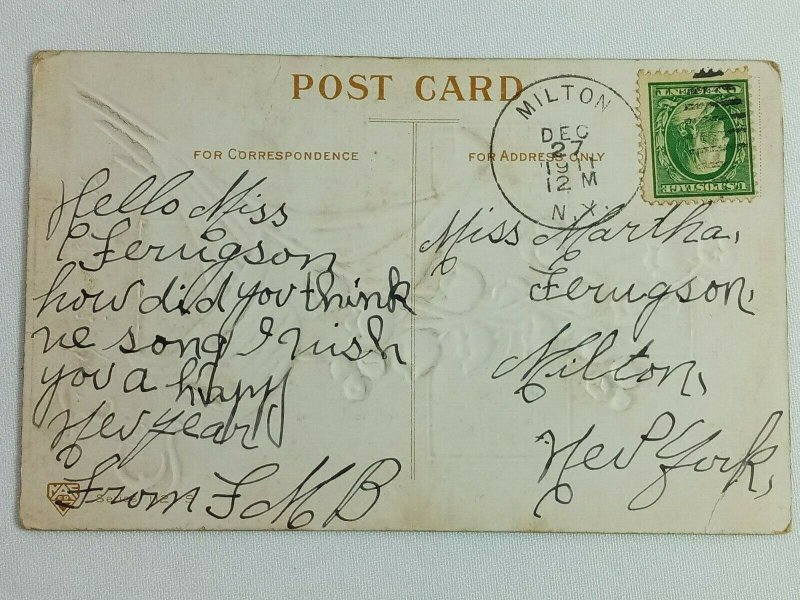 POST CARD
FOR CORRESPONDENCE
FOR ADDRESS ONLY
MILTON
DEC
27
1911
12 M
N.Y.
U.S. POSTAGE
Hello Miss
Ferugson
how did you think
ve song I wish
you a happy
Nev year
From F M B
Miss Martha,
Ferugson,
Milton,
Nev York,